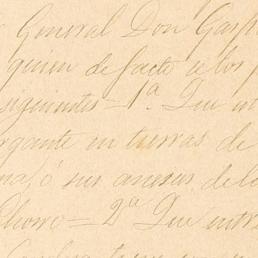 General Don Gasp
quien de facto a los
siguientes = 1ª. Que int
rgante en tierras de
na, ó sus anexas de la
Chorro = 2ª Que intr